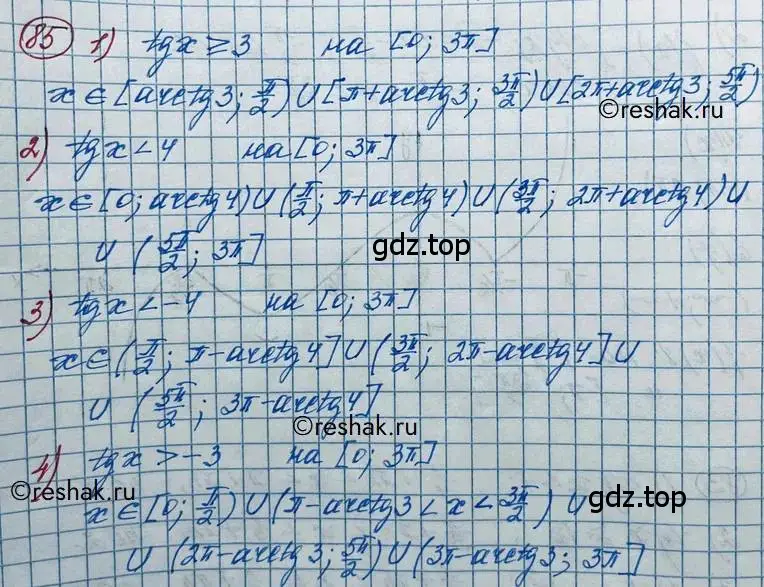 85 1) tg x ≥ 3 на [0; 3π]
x ∈ [arctg 3; π/2) ∪ [π + arctg 3; 3π/2) ∪ [2π + arctg 3; 5π/2)
©reshak.ru
2) tg x < 4 на [0; 3π]
x ∈ [0; arctg 4) ∪ (π/2; π + arctg 4) ∪ (3π/2; 2π + arctg 4) ∪
∪ (5π/2; 3π]
gdz.top
3) tg x < -4 на [0; 3π]
x ∈ (π/2; π - arctg 4] ∪ (3π/2; 2π - arctg 4] ∪
∪ (5π/2; 3π - arctg 4]
©reshak.ru
4) tg x > -3 на [0; 3π]
©reshak.ru
x ∈ [0; π/2) ∪ (π - arctg 3 < x < 3π/2) ∪
gdz.top
∪ (2π - arctg 3; 5π/2) ∪ (3π - arctg 3; 3π]